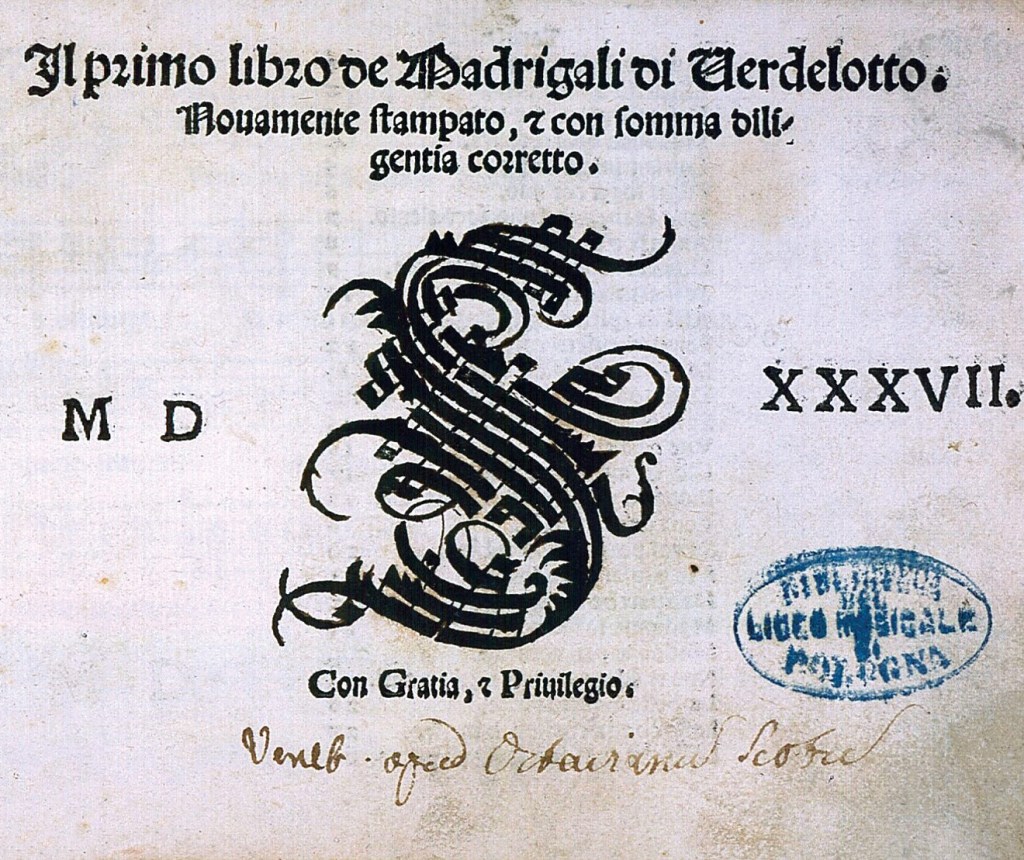 Il primo libro de Madrigali di Verdelotto.
Nouamente stampato, ⁊ con somma dili-
gentia corretto.
M D XXXVII.
BIBLIOTECA
DEL
LICEO MUSICALE
DI
BOLOGNA
Con Gratia, ⁊ Priuilegio.
apud Octavianum Scotum